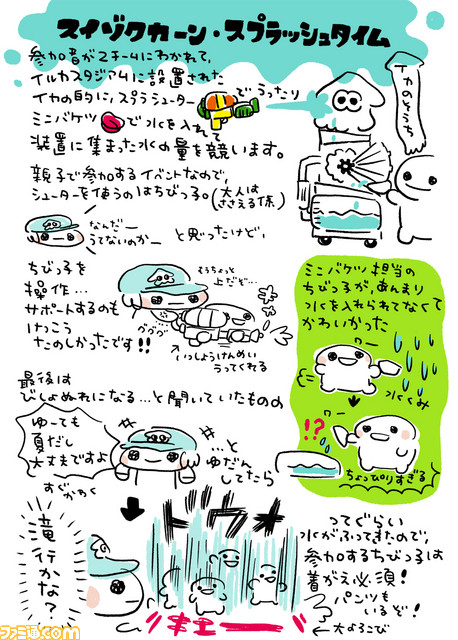 スイゾクカーン・スプラッシュタイム
参加者が2チームにわかれて、
イルカスタジアムに設置された
イカの的に、スプラシューターでうったり
ミニバケツで水を入れて
装置に集まった水の量を競います。
イカのそうち
親子で参加するイベントなので、
シューターを使うのはちびっ子。(大人は
ささえる係)
なんだー
うてないのかー
と思ったけど、
ちびっ子を
操作…
サポートするのも
けっこう
たのしかったです!!
もうちょっと
上だぞ…
グググ
いっしょうけんめい
うってくれる
ミニバケツ担当の
ちびっ子が、あんまり
水を入れられてなくて
かわいかった
ワー
水くみ
ワー
!?
ちょっぴりすぎる
最後は
びしょぬれになる…と聞いていたものの
ゆーても
夏だし
大丈夫ですよ
すぐかわく
…と
ゆだん
してたら
ドウォ
滝行かな?
キャー
ってぐらい
水がふってきたので、
参加するちびっ子は
着がえ必須!
パンツも
いるぞ!
大よろこび
ファミ通.com